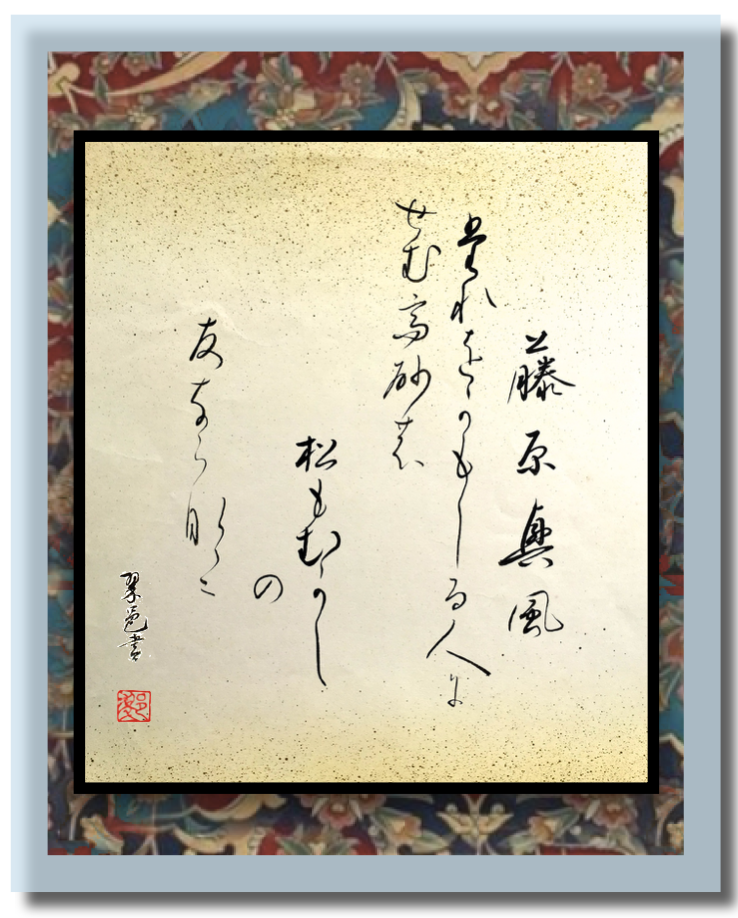 藤原興風
堂れをかもしる人に
せむ高砂の
松もむかし
の
友なら那くに
翠邑書